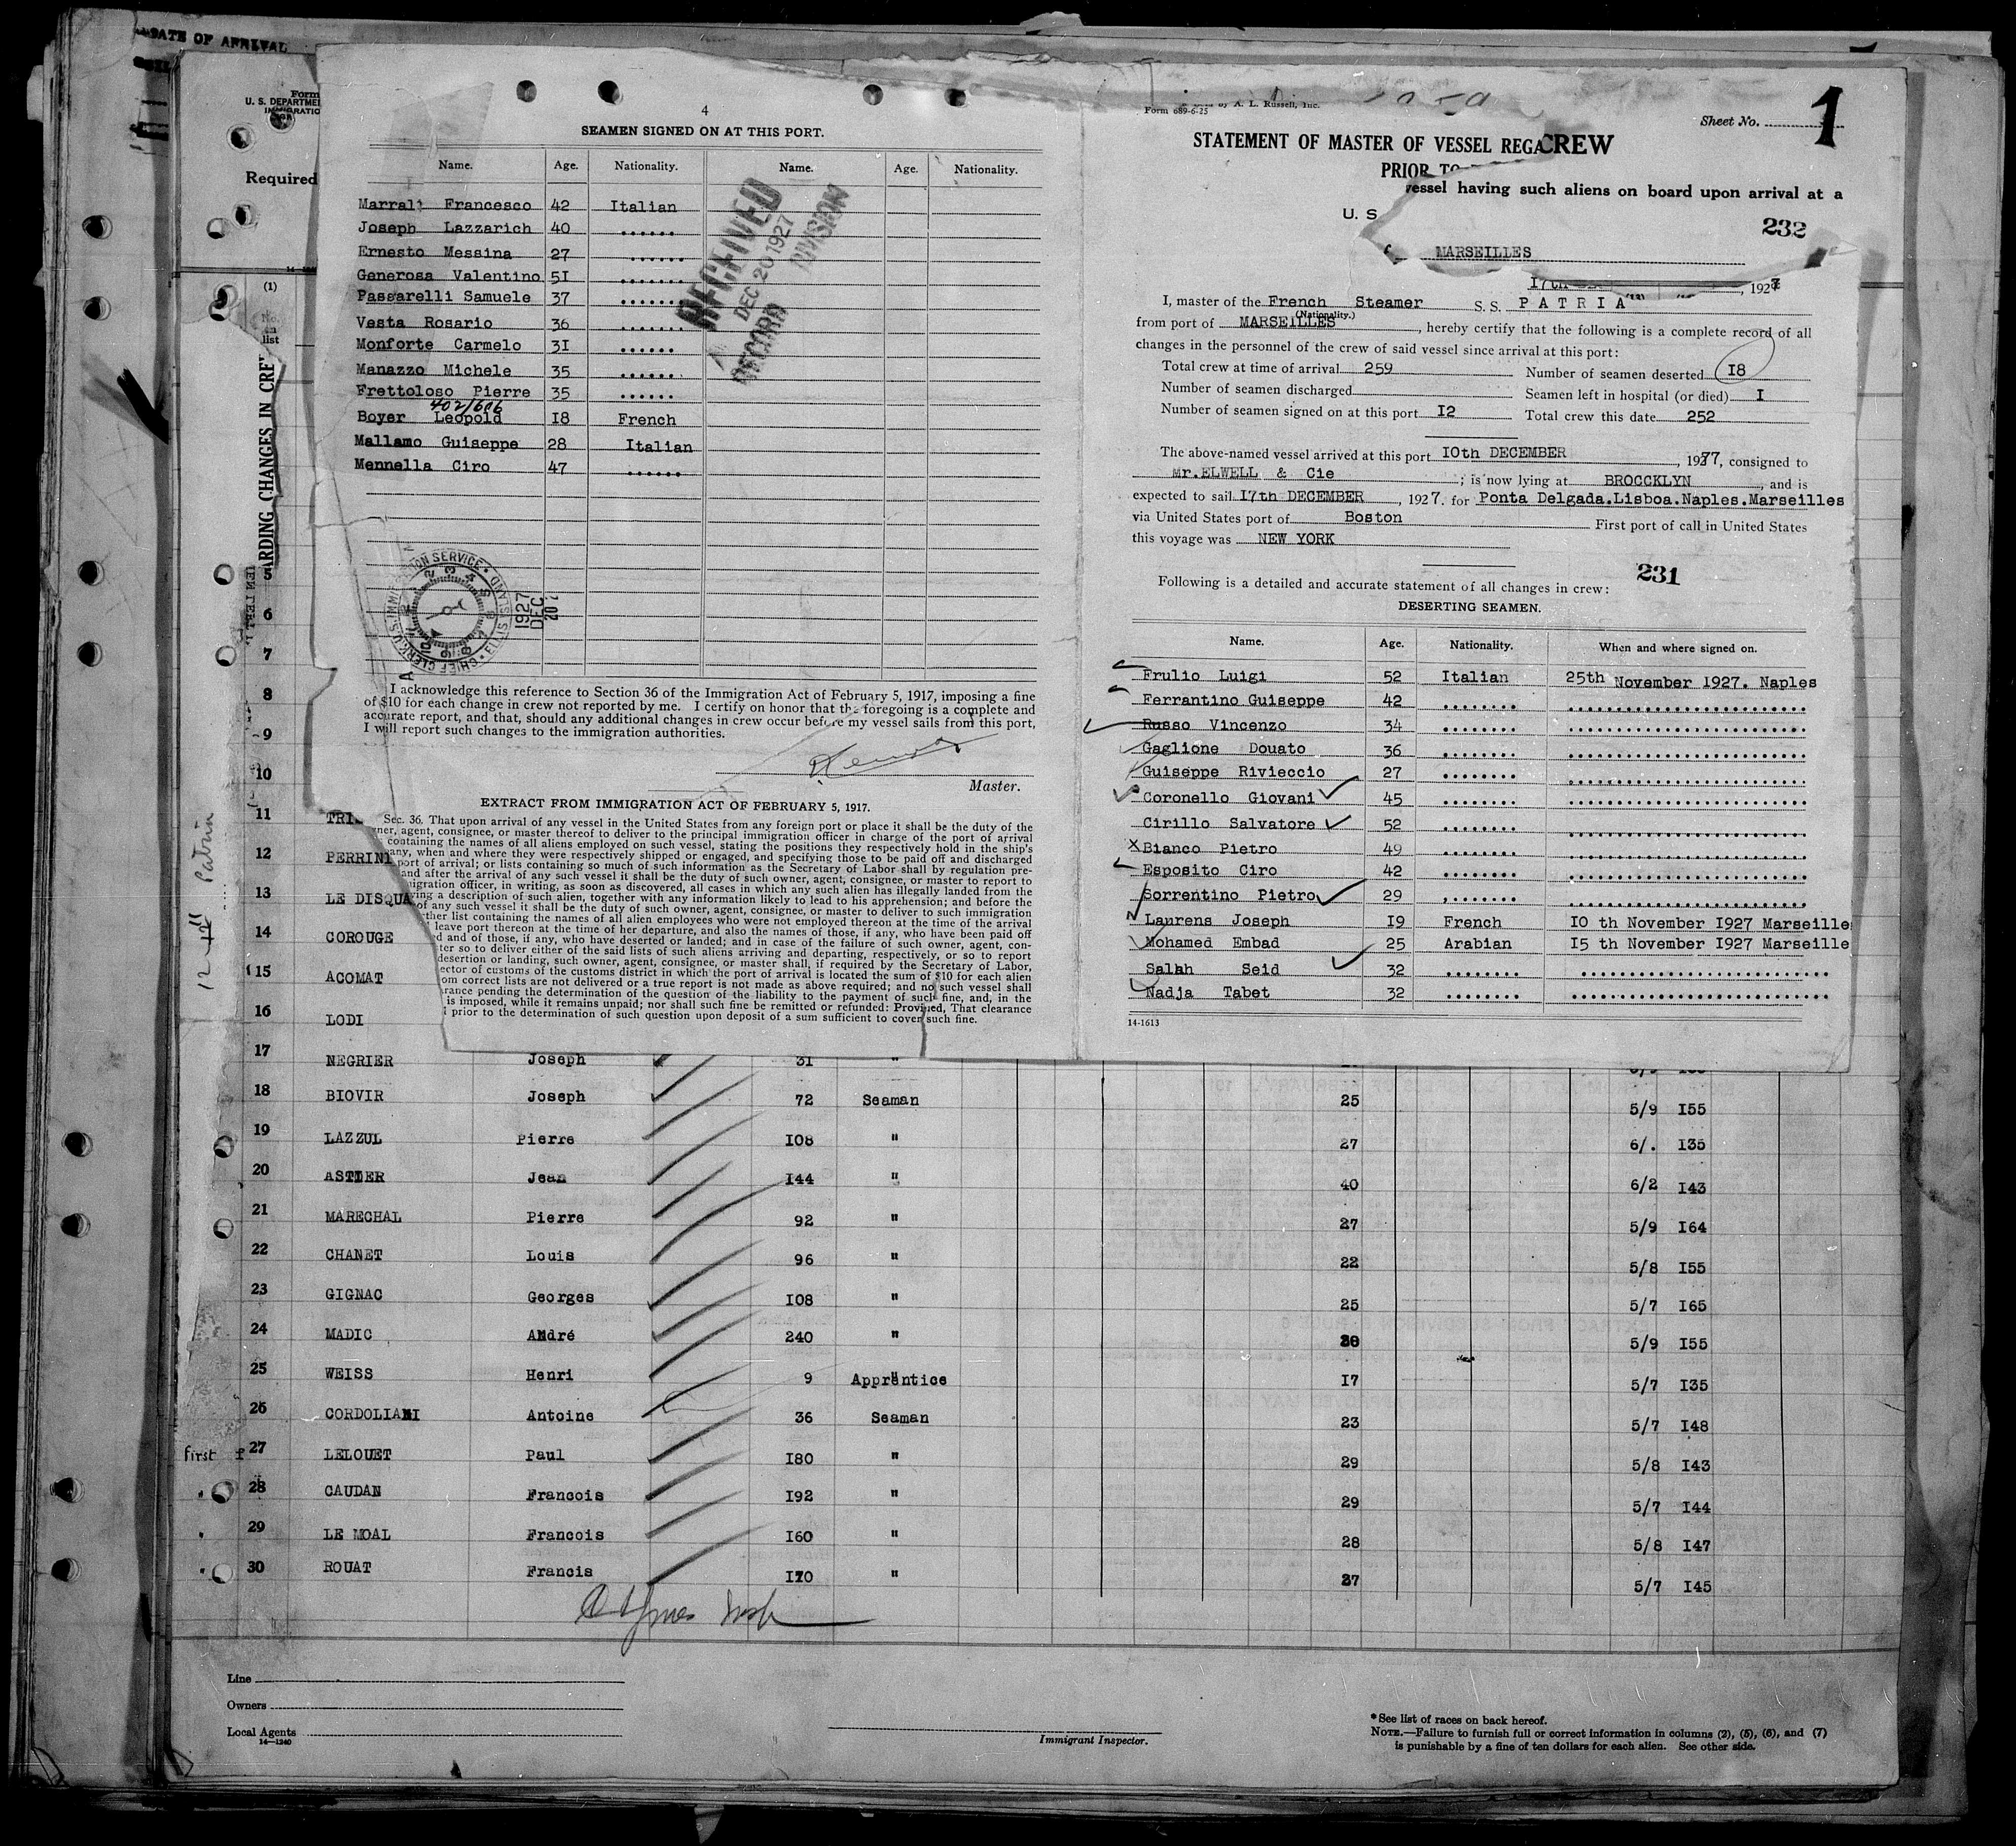 DATE OF ARRIVAL
Form
U. S. DEPARTME
IMMIGRATIO
Required
14
(1)
No.
list
ARDING CHANGES IN CREW
12-12 Patria
4
SEAMEN SIGNED ON AT THIS PORT.
Name. Age. Nationality. Name. Age. Nationality.
Marrali Francesco 42 Italian
Joseph Lazzarich 40 ......
Ernesto Messina 27 ......
Generosa Valentino 51 ......
Passarelli Samuele 37 ......
Vesta Rosario 36 ......
Monforte Carmelo 31 ......
Manazzo Michele 35 ......
Frettoloso Pierre 35 ......
402/606
Boyer Leopold 18 French
Mallamo Guiseppe 28 Italian
Mennella Ciro 47 ......
RECEIVED
DEC 20 1927
RECORD DIVISION
CHIEF CLERK U.S. IMMIGRATION SERVICE · ELLIS ISLAND
1927
DEC
20
I acknowledge this reference to Section 36 of the Immigration Act of February 5, 1917, imposing a fine
of $10 for each change in crew not reported by me. I certify on honor that the foregoing is a complete and
accurate report, and that, should any additional changes in crew occur before my vessel sails from this port,
I will report such changes to the immigration authorities.
Master.
EXTRACT FROM IMMIGRATION ACT OF FEBRUARY 5, 1917.
Sec. 36. That upon arrival of any vessel in the United States from any foreign port or place it shall be the duty of the
ner, agent, consignee, or master thereof to deliver to the principal immigration officer in charge of the port of arrival
containing the names of all aliens employed on such vessel, stating the positions they respectively hold in the ship's
any, when and where they were respectively shipped or engaged, and specifying those to be paid off and discharged
port of arrival; or lists containing so much of such information as the Secretary of Labor shall by regulation pre-
and after the arrival of any such vessel it shall be the duty of such owner, agent, consignee, or master to report to
igration officer, in writing, as soon as discovered, all cases in which any such alien has illegally landed from the
ving a description of such alien, together with any information likely to lead to his apprehension; and before the
of any such vessel it shall be the duty of such owner, agent, consignee, or master to deliver to such immigration
ther list containing the names of all alien employees who were not employed thereon at the time of the arrival
leave port thereon at the time of her departure, and also the names of those, if any, who have been paid off
d and of those, if any, who have deserted or landed; and in case of the failure of such owner, agent, con-
ter so to deliver either of the said lists of such aliens arriving and departing, respectively, or so to report
desertion or landing, such owner, agent, consignee, or master shall, if required by the Secretary of Labor,
ector of customs of the customs district in which the port of arrival is located the sum of $10 for each alien
om correct lists are not delivered or a true report is not made as above required; and no such vessel shall
rance pending the determination of the question of the liability to the payment of such fine, and, in the
is imposed, while it remains unpaid; nor shall such fine be remitted or refunded: Provided, That clearance
prior to the determination of such question upon deposit of a sum sufficient to cover such fine.
by A. L. Russell, Inc.
Form 689-6-25
Sheet No. 1
STATEMENT OF MASTER OF VESSEL REGA CREW
PRIOR TO
vessel having such aliens on board upon arrival at a
U. S
232
MARSEILLES
17th , 1927
I, master of the French Steamer S. S. PATRIA
(Nationality.)
from port of MARSEILLES, hereby certify that the following is a complete record of all
changes in the personnel of the crew of said vessel since arrival at this port:
Total crew at time of arrival 259 Number of seamen deserted 18
Number of seamen discharged Seamen left in hospital (or died) I
Number of seamen signed on at this port 12 Total crew this date 252
The above-named vessel arrived at this port 10th DECEMBER, 1927, consigned to
Mr.ELWELL & Cie; is now lying at BROCCKLYN, and is
expected to sail 17th DECEMBER, 1927. for Ponta Delgada.Lisboa.Naples.Marseilles
via United States port of Boston First port of call in United States
this voyage was NEW YORK
231
Following is a detailed and accurate statement of all changes in crew:
DESERTING SEAMEN.
Name. Age. Nationality. When and where signed on.
Frulio Luigi 52 Italian 25th November 1927. Naples
Ferrantino Guiseppe 42 ........
Russo Vincenzo 34 ........
Gaglione Douato 36 ........
Guiseppe Rivieccio 27 ........
Coronello Giovani 45 ........
Cirillo Salvatore 52 ........
X Bianco Pietro 49 ........
Esposito Ciro 42 ........
Sorrentino Pietro 29 ........
Laurens Joseph 19 French 10 th November 1927 Marseille
Mohamed Embad 25 Arabian 15 th November 1927 Marseille
Salah Seid 32 ........
Nadja Tabet 32 ........
14-1613
5
6
7
8
9
10
11 TRI
12 PERRINI
13 LE DISQUA
14 COROUGE
15 ACOMAT
16 LODI
17 NEGRIER Joseph 31 "
18 BIOVIR Joseph 72 Seaman 25 5/9 155
19 LAZZUL Pierre 108 " 27 6/. 135
20 ASTIER Jean 144 " 40 6/2 143
21 MARECHAL Pierre 92 " 27 5/9 164
22 CHANET Louis 96 " 22 5/8 155
23 GIGNAC Georges 108 " 25 5/7 165
24 MADIC André 240 " 5/9 155
25 WEISS Henri 9 Apprentice 17 5/7 135
26 CORDOLIANI Antoine 36 Seaman 23 5/7 148
first 27 LELOUET Paul 180 " 29 5/8 143
" 28 CAUDAN Francois 192 " 29 5/7 144
" 29 LE MOAL Francois 160 " 28 5/8 147
" 30 ROUAT Francis 170 " 27 5/7 145
Line
Owners
Local Agents
14—1240
Immigrant Inspector.
*See list of races on back hereof.
NOTE.—Failure to furnish full or correct information in columns (2), (5), (6), and (7)
is punishable by a fine of ten dollars for each alien. See other side.